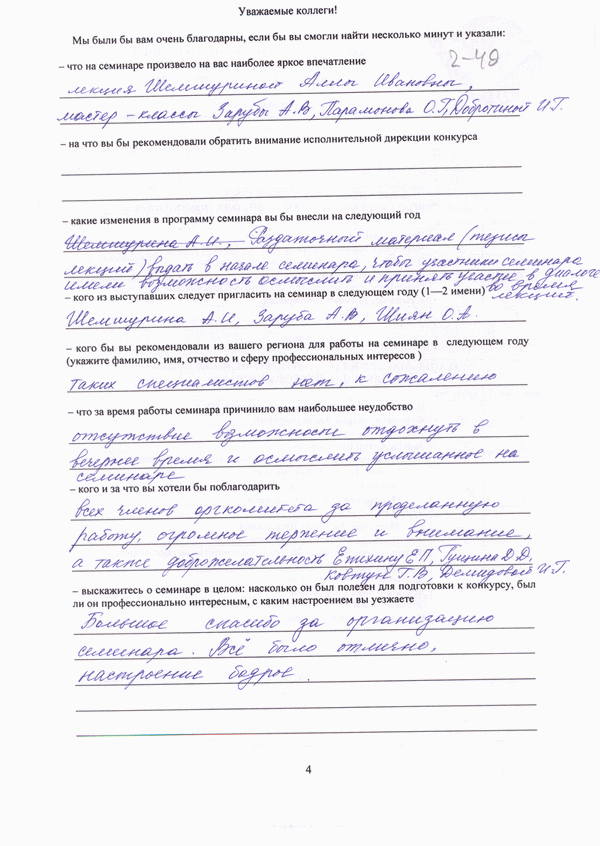 Уважаемые коллеги!
Мы были бы вам очень благодарны, если бы вы смогли найти несколько минут и указали:
2-48
– что на семинаре произвело на вас наиболее яркое впечатление
лекция Шемшуриной Анны Ивановны,
мастер-классы Зарубы А.В, Парамонова О.Г, Добротиной И.Г.
– на что вы бы рекомендовали обратить внимание исполнительной дирекции конкурса
– какие изменения в программу семинара вы бы внесли на следующий год
Шемшурина А.И., Раздаточный материал (тезисы
лекций) выдать в начале семинара, чтобы участники семинара
имели возможность осмыслить и принять участие в диалоге
во время
лекций.
– кого из выступавших следует пригласить на семинар в следующем году (1—2 имени)
Шемшурина А.И, Заруба А.В, Шиян О.А.
– кого бы вы рекомендовали из вашего региона для работы на семинаре в следующем году
(укажите фамилию, имя, отчество и сферу профессиональных интересов )
таких специалистов нет, к сожалению
– что за время работы семинара причинило вам наибольшее неудобство
отсутствие возможности отдохнуть в
вечернее время и осмыслить услышанное на
семинаре
– кого и за что вы хотели бы поблагодарить
всех членов оргкомитета за проделанную
работу, огромное терпение и внимание,
а также доброжелательность Елихину Е.П, Гущина Д.Д,
Ковтун Г.В, Демидовой И.Г.
– выскажитесь о семинаре в целом: насколько он был полезен для подготовки к конкурсу, был
ли он профессионально интересным, с каким настроением вы уезжаете
Большое спасибо за организацию
семинара. Всё было отлично,
настроение бодрое.
4